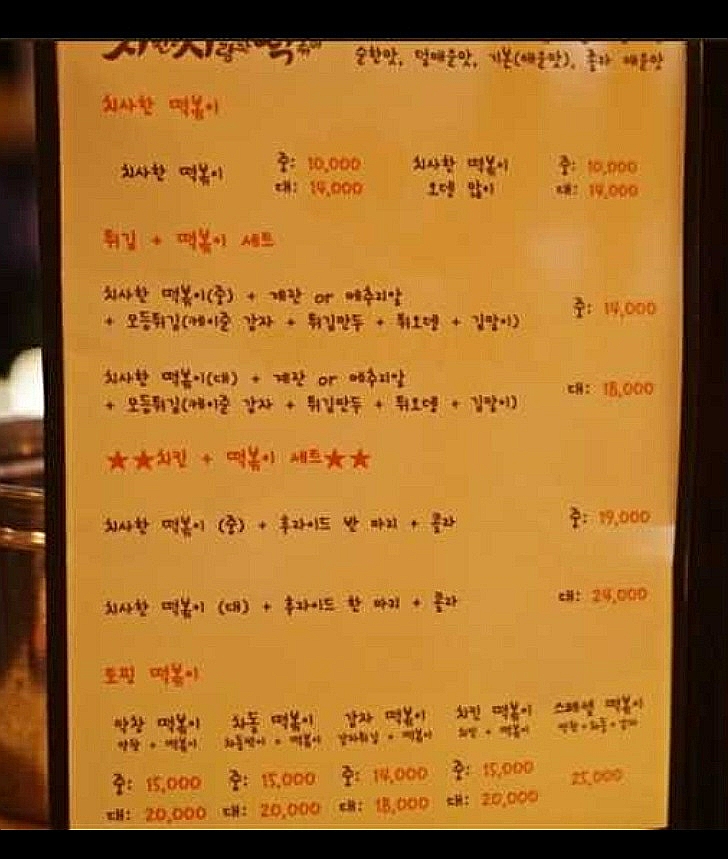 순한맛, 덜매운맛, 기본(매운맛), 졸라 매운맛
치사한 떡볶이
치사한 떡볶이 중: 10,000 대: 14,000
치사한 떡볶이 오뎅 많이 중: 10,000 대: 14,000
튀김 + 떡볶이 세트
치사한 떡볶이(중) + 계란 or 메추리알
+ 모듬튀김(케이준 감자 + 튀김만두 + 튀오뎅 + 김말이) 중: 14,000
치사한 떡볶이(대) + 계란 or 메추리알
+ 모듬튀김(케이준 감자 + 튀김만두 + 튀오뎅 + 김말이) 대: 18,000
★★치킨 + 떡볶이 세트★★
치사한 떡볶이 (중) + 후라이드 반 마리 + 콜라 중: 19,000
치사한 떡볶이 (대) + 후라이드 한 마리 + 콜라 대: 24,000
토핑 떡볶이
막창 떡볶이 차돌 떡볶이 감자 떡볶이 치킨 떡볶이 스페셜 떡볶이
막창 + 떡볶이 차돌박이 + 떡볶이 감자튀김 + 떡볶이 + 떡볶이
중: 15,000 중: 15,000 중: 14,000 중: 15,000 25,000
대: 20,000 대: 20,000 대: 18,000 대: 20,000